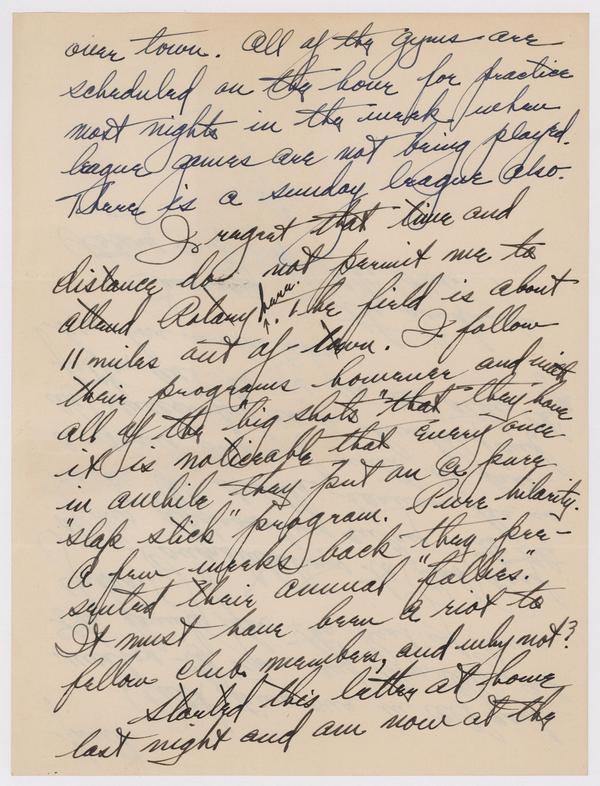 over town. All of the gyms are
scheduled on the hour for practice
most nights in the week when
league games are not being played.
There is a sunday league also.
I regret that time and
distance do not permit me to
attend Rotary here. The field is about
11 miles out of town. I follow
their programs however and with
all of the "big shots" that they have
it is noticeable that every once
in awhile they put on a pure
"slap stick" program. Pure hilarity.
A few weeks back they pre-
sented their annual "follies".
It must have been a riot to
fellow club members, and why not?
Started this letter at home
last night and am now at the